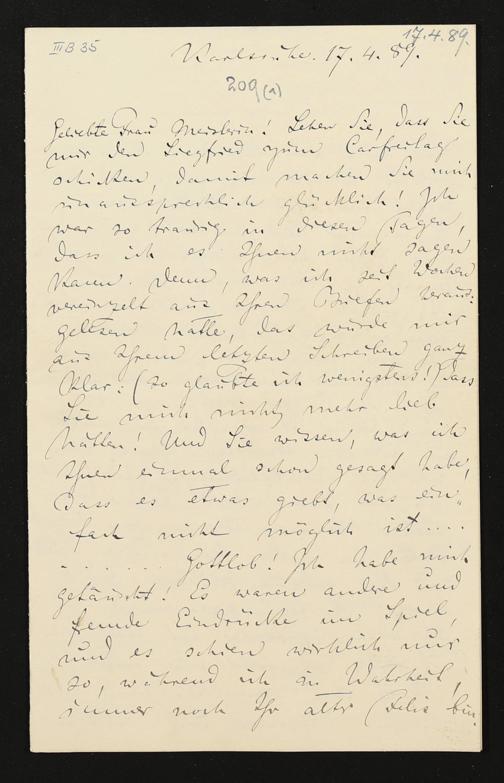 III B 35
17.4.89.
Karlsruhe. 17. 4. 89.
209 (a)
Geliebte Frau Meisterin! Sehen Sie, dass Sie
mir den Siegfried zum Carfreitag
schickten, damit machen Sie mich
unaussprechlich glücklich! Ich
war so traurig in diesen Tagen,
dass ich es Ihnen nicht sagen
kann. Denn, was ich seit Wochen
vereinzelt aus Ihren Briefen heraus:
gelesen hatte, das wurde mir
aus Ihrem letzten Schreiben ganz
klar: (so glaubte ich wenigstens!) dass
Sie mich nicht mehr lieb
hätten! Und Sie wissen, was ich
Ihnen einmal schon gesagt habe,
dass es etwas giebt, was ein„
fach nicht möglich ist ....
...... Gottlob! Ich habe mich
getäuscht! Es waren andre und
fremde Eindrücke im Spiel,
und es schien wirklich nur
so, während ich in Wahrheit,
immer noch Ihr alter Felix bin.